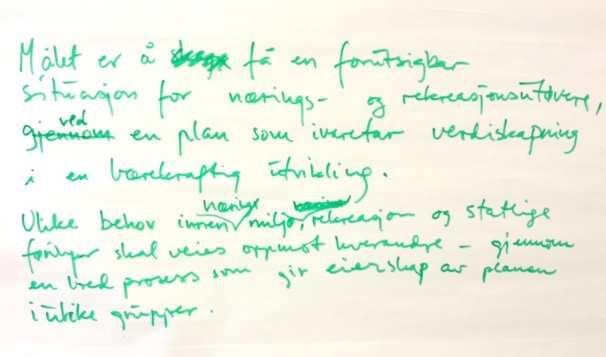 Målet er å få en forutsigbar
situasjon for nærings- og rekreasjonsutøvere,
ved
gjennom en plan som ivaretar verdiskapning
i en bærekraftig utvikling.
næring
Ulike behov innen miljø, rekreasjon og statlige
føringer skal veies oppmot hverandre – gjennom
en bred prosess som gir eierskap av planen
i ulike grupper.